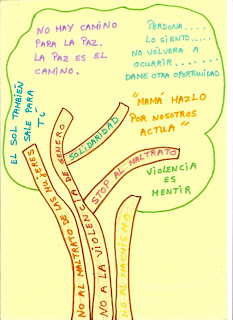 NO HAY CAMINO
PARA LA PAZ.
LA PAZ ES EL
CAMINO.
PERDONA....
LO SIENTO.....
NO VOLVERA A
OCURRIR........
DAME OTRA OPORTUNIDAD
EL SOL TAMBIÉN
SALE PARA
TÚ
"MAMÁ HAZLO
POR NOSOTROS
ACTUA"
VIOLENCIA
ES
MENTIR
NO AL MALTRATO DE LAS MUJERES
NO A LA VIOLENCIA DE GENERO
SOLIDARIDAD
STOP AL MALTRATO
NO AL MACHISMO